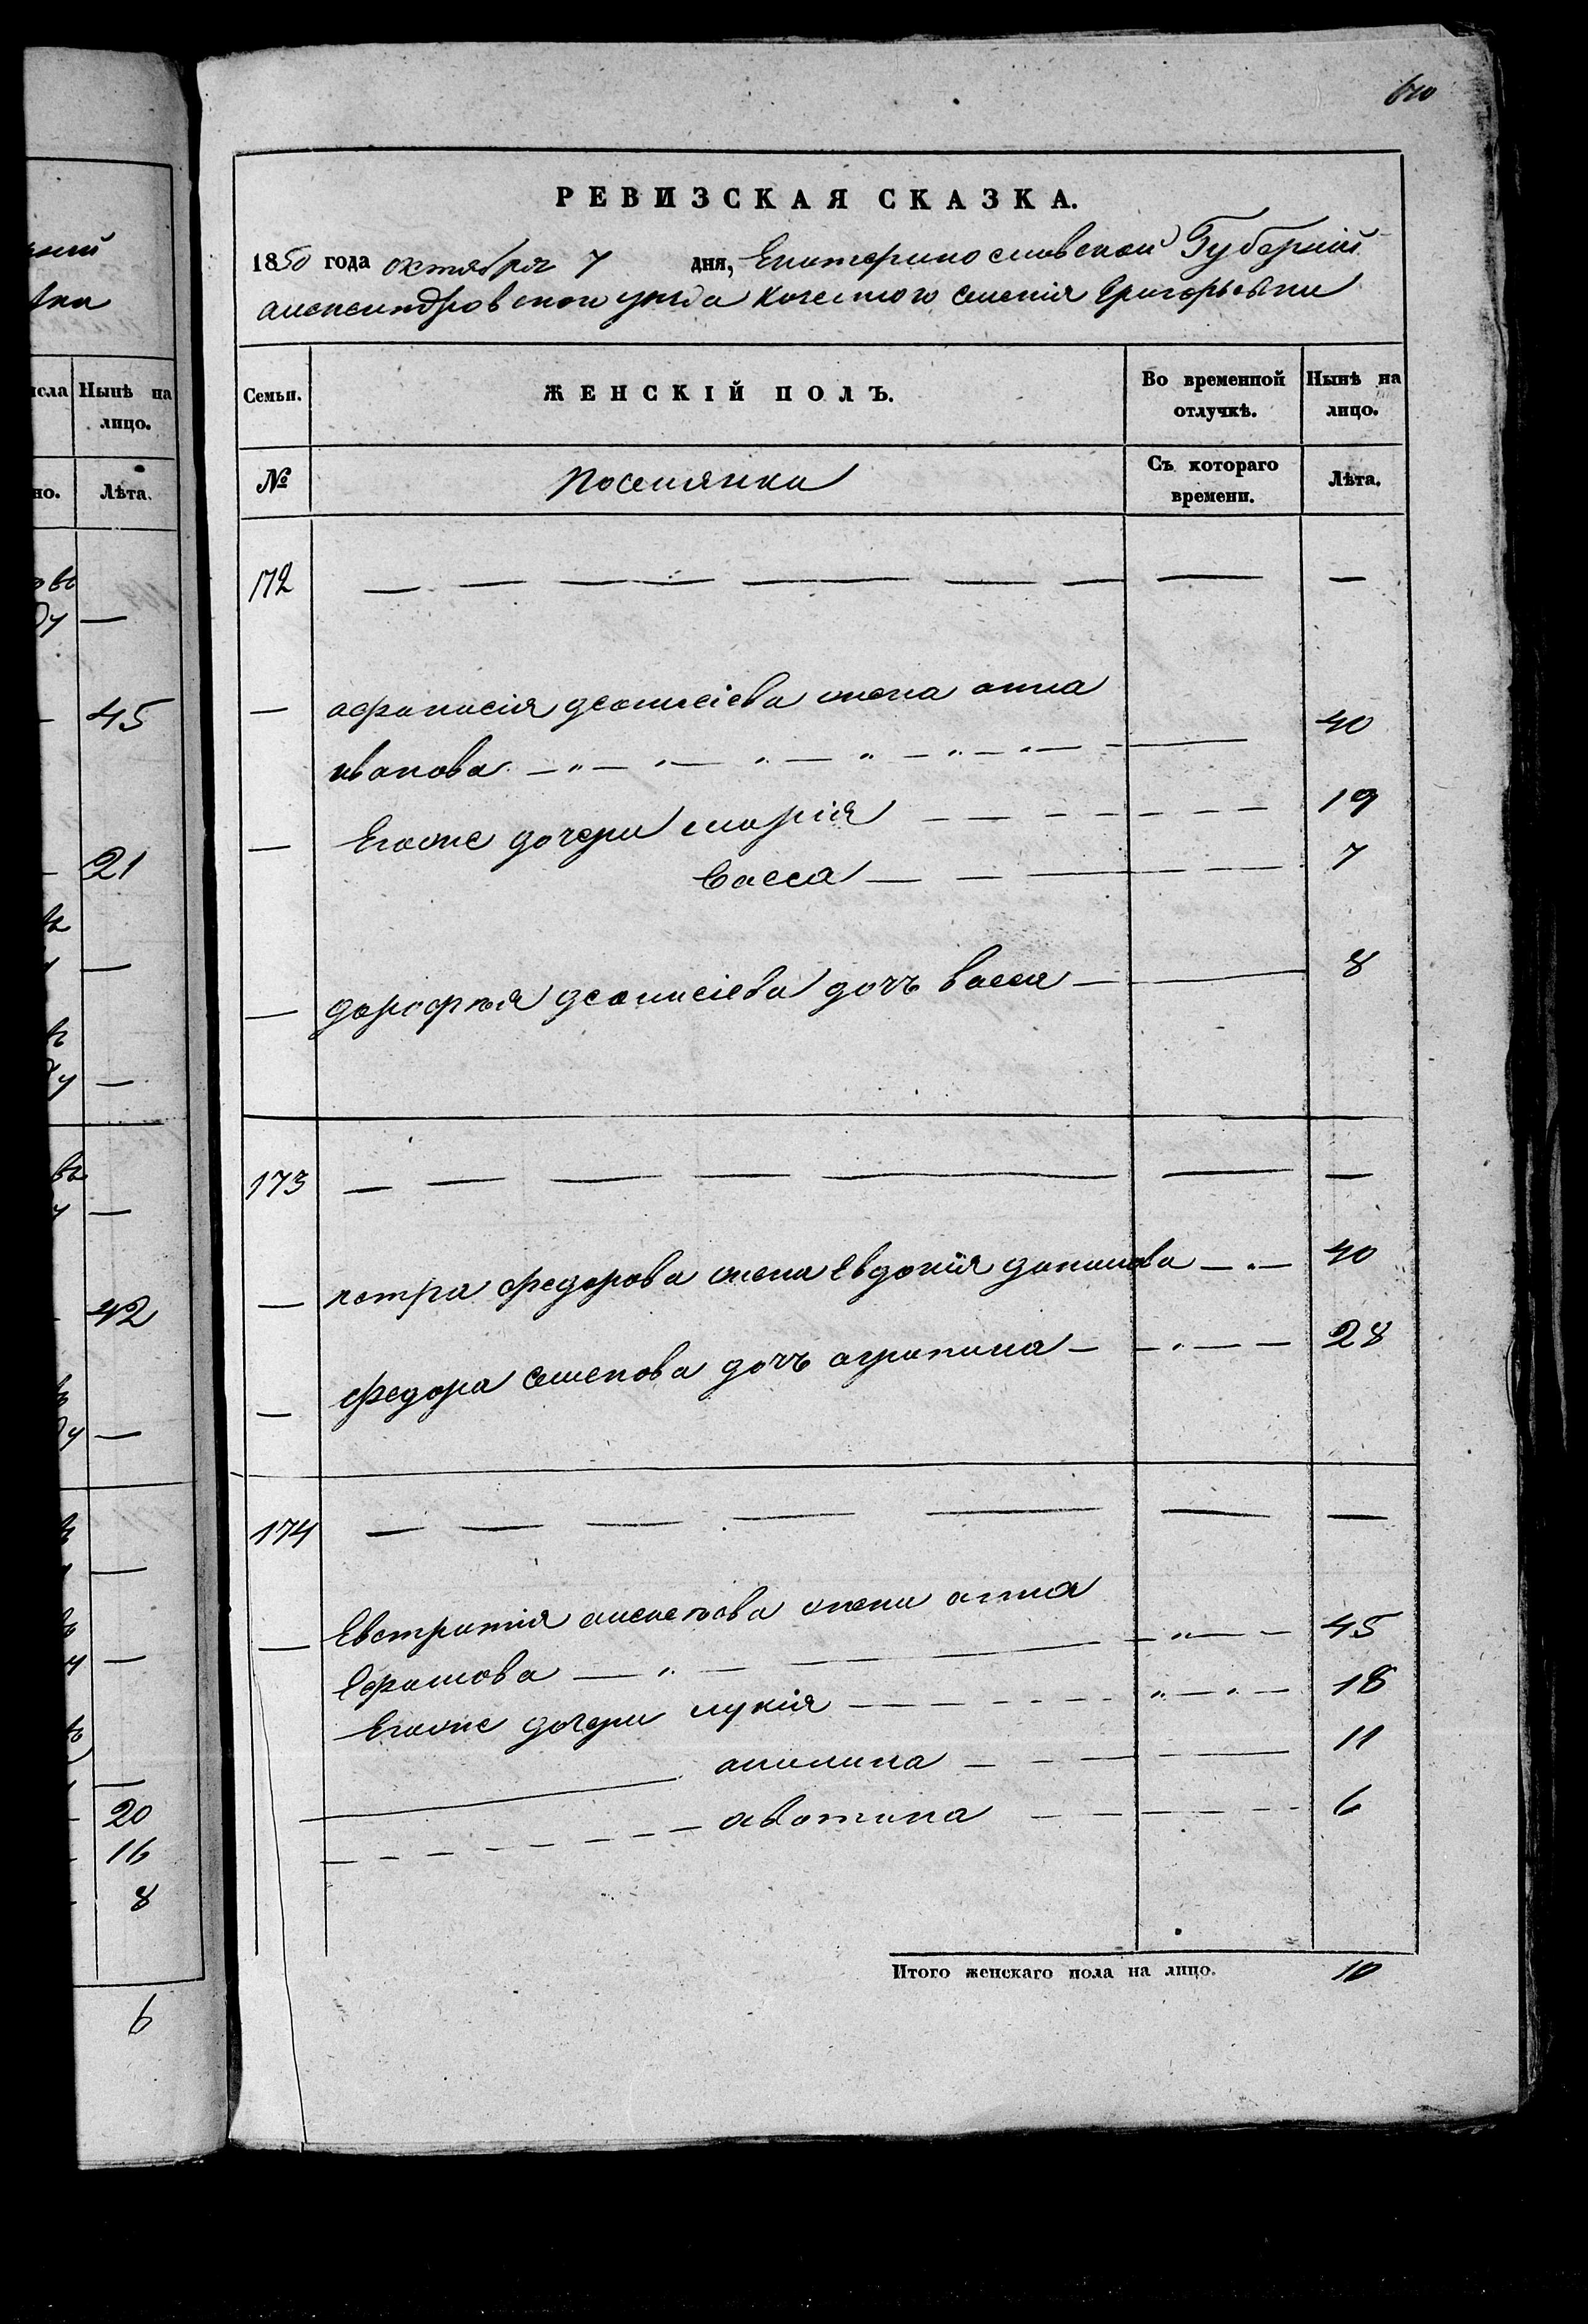 640
РЕВИЗСКАЯ СКАЗКА.
1850 года октября 7 дня, Екатеринославской Губерніи
александровского уезда казенного селенія Григорьевки
Семьи.
ЖЕНСКІЙ ПОЛЪ.
Во временной отлучкѣ.
Нынѣ на лицо.
№
Поселянки
Съ котораго времени.
Лѣта.
172 — —
афанасія деонисіева жена анна
иванова 40
Егоже дочери марія 19
васса 7
дорофея деонисіева дочъ васса 8
173 — —
петра федорова жена Евдокія данилова 40
федора семенова дочъ агрипина 28
174 — —
Евстратія алексѣева жена анна
Ефимова 45
Егоже дочери лукія 18
акилина 11
авотина 6
Итого женскаго пола на лицо. 10
Нынѣ на лицо.
Лѣта.
45
21
42
20
16
8
6